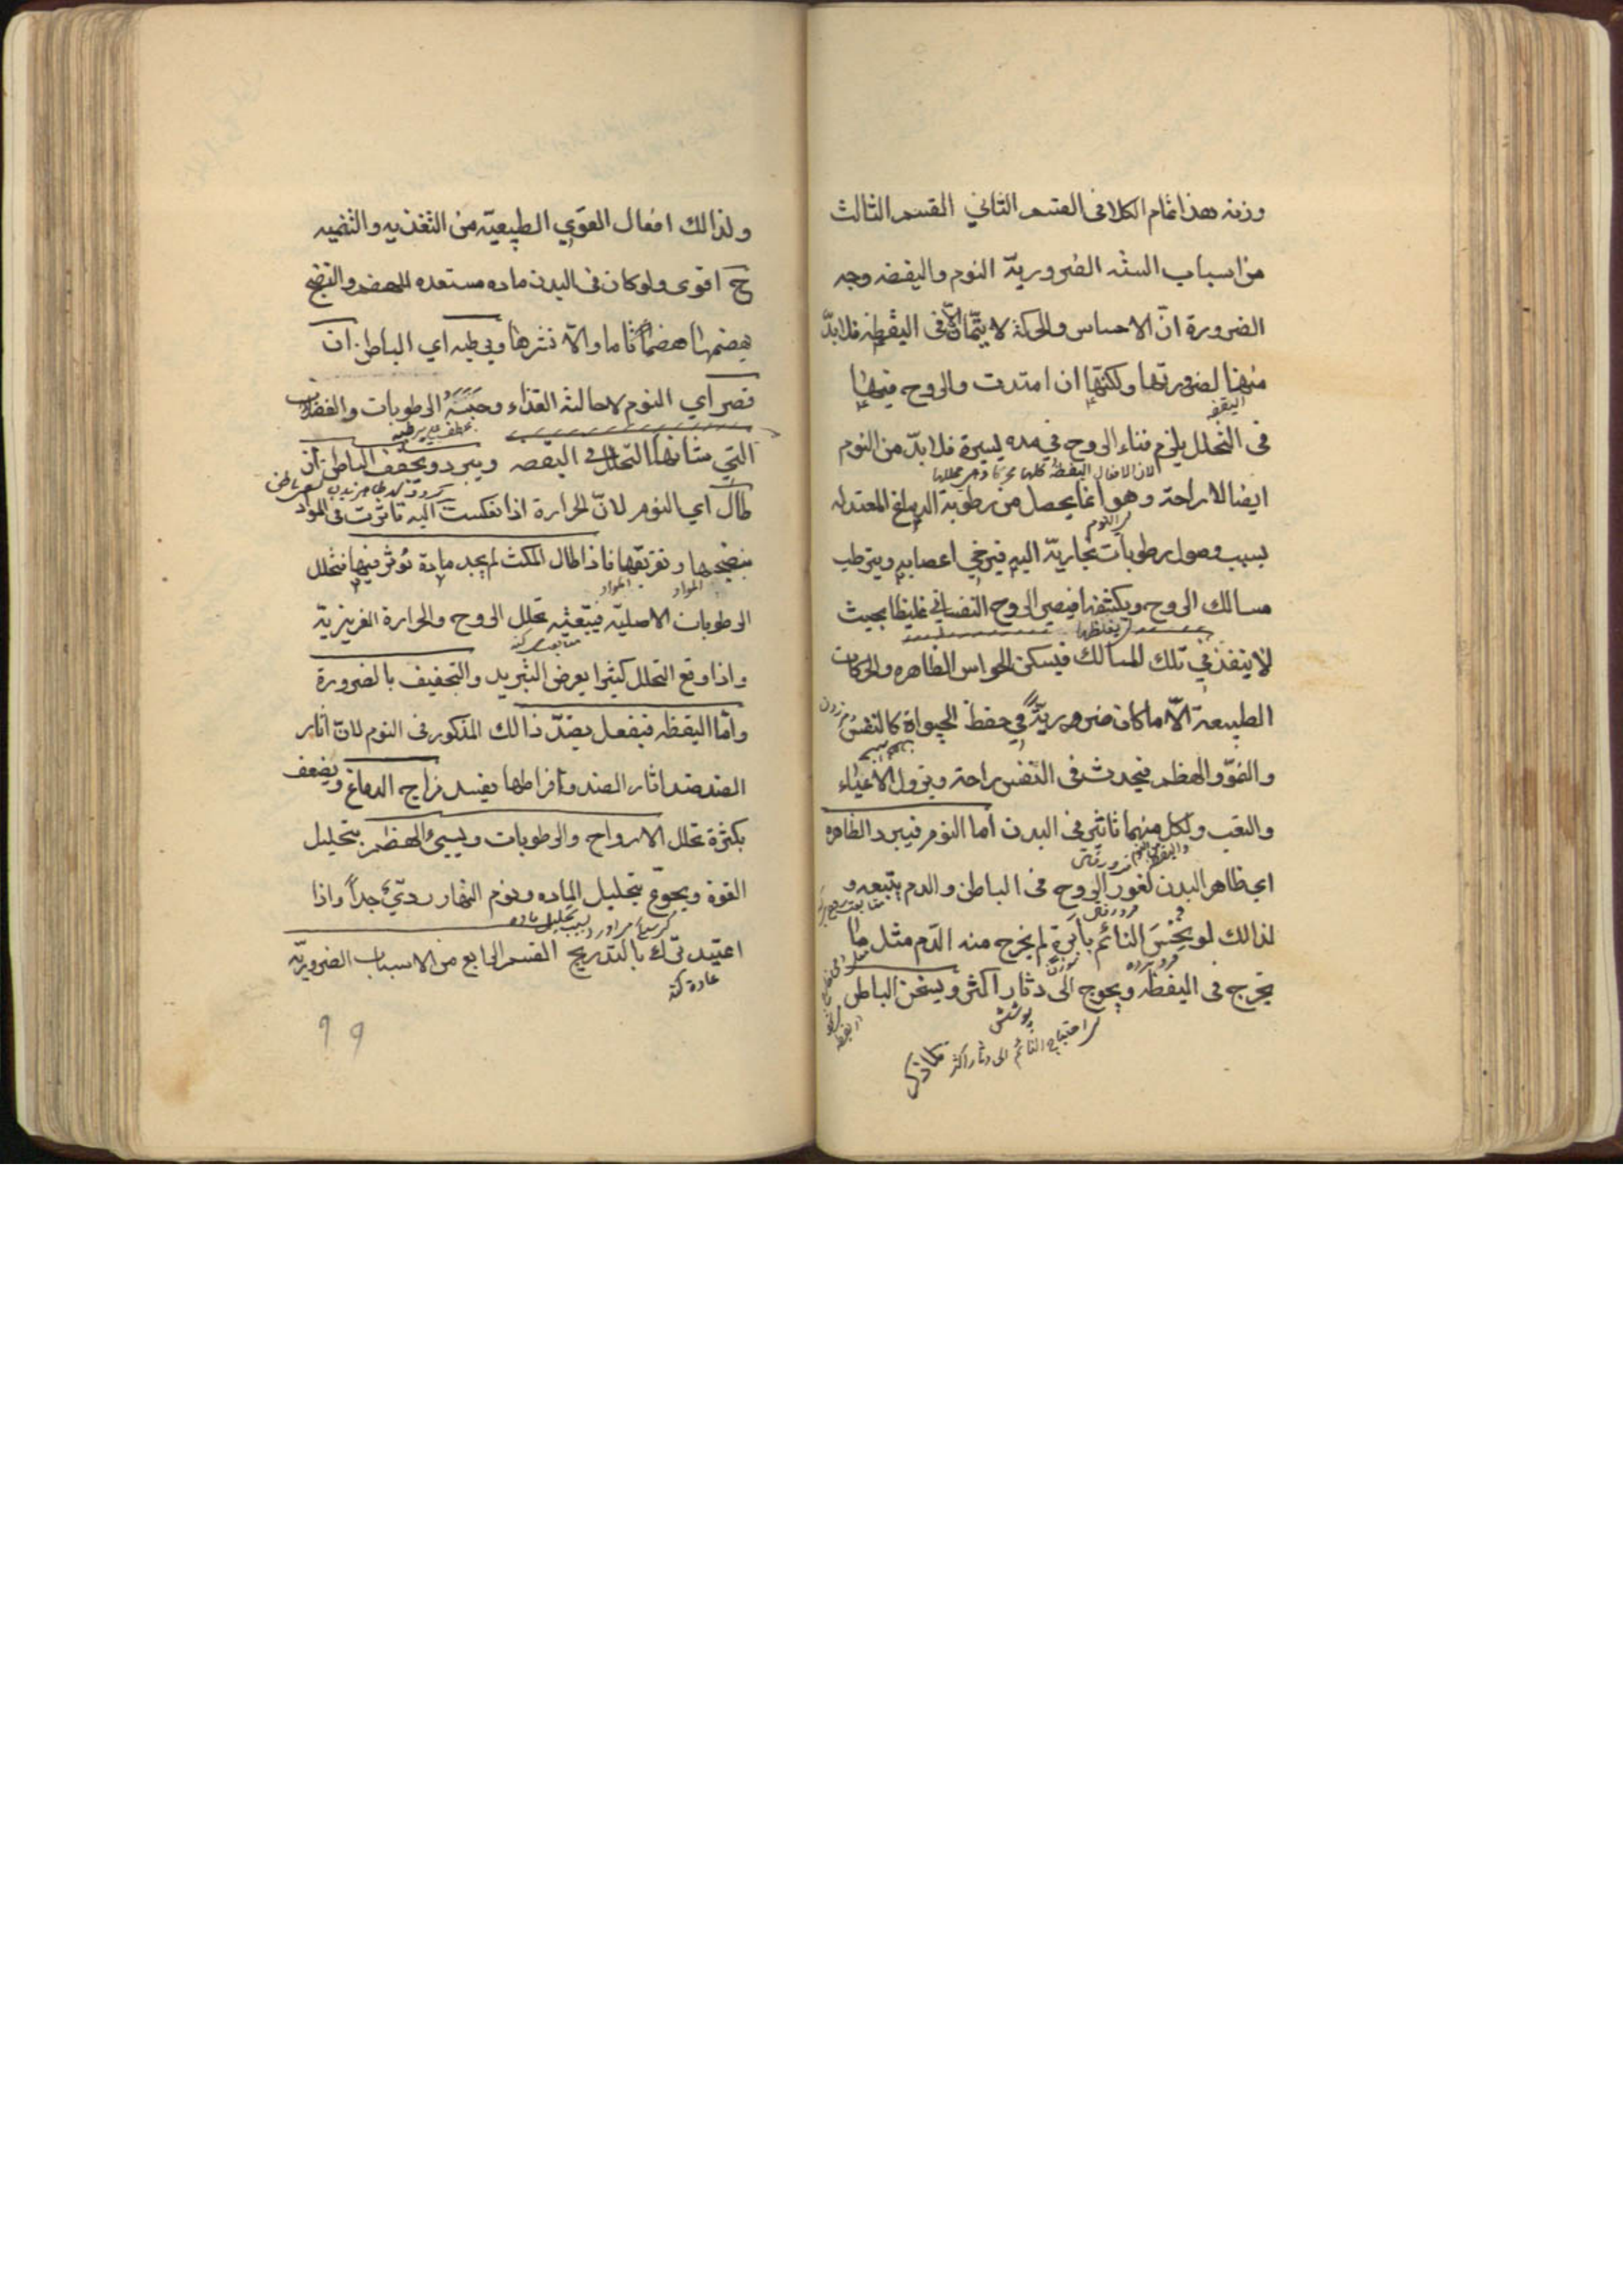 وزنه هذا تمام الكلا فى القسم الثاني القسم الثالث
من اسباب السته الضروريّة النوم واليقضه وجه
الضرورة انّ الاحساس والحركة لا يتمّان الّا فى اليقظة فلا بدّ
منها لضرورتها ولكنّها ان امتدت والروح فيها
اليقضه
فى التحلل يلزم فناء الروح في مده يسيرة فلا بدّ من النوم
لان الافعال اليقظة كلها
ايضا لاراحة وهو انما يحصل من رطوبة الدماغ المعتدله
اي النوم
بسبب وصول رطوبات بخاريّة اليه فيرخي اعصابه ويترطب
مسالك الروح ويكثفها فيصير الروح النفساني غليظا بحيث
يغلظها
لا ينفذ في تلك المسالك فيسكن الحواس الظاهره والحركات
الطبيعة الّا ما كان ضروريّة في حفظ الحيواة كالتنفس
والنموّ والهظم فيحدث فى النفس راحة ويزول الاعياء
والتعب ولكل منهما تاثير فى البدن اما النوم فيبرد الظاهره
اي ظاهر البدن لغور الروح فى الباطن والدم يتبعه و
لذالك لو يخس النائم بابرة لم يخرج منه الدّم مثل ما
يخرج فى اليقظه ويحوج الى دثار اكثر ويسخن الباطن
پوشش
احتياج النائم الى دثار اكثر
ولذالك افعال القوي الطبيعيّة من التغذيه والتنميه
ح اقوى ولو كان فى البدن ماده مستعده للهضم والنضج
يهضمها هضماً تاما والّا نثرها ويرطبه اي الباطن ان
قصر اي النوم لاحالته الغذاء وحبسه الرطوبات والفضلات
عطف على يرطبه
التي شانها التحلل في اليقضه ويبرد ويجفف الباطن ان
طال اي النوم لانّ الحرارة اذا نعكست اليه تاثرت فى المواد
بنضجها وتفريقها فاذا طال المكث لم يجد مادة توثر فيها فتحلل
المواد المواد
الرطوبات الاصليّة فيتبعه تحلل الروح والحرارة الغريزيّة
واذا وقع التحلل كثيرا يعرض التبريد والتجفيف بالضرورة
وامّا اليقظه فيفعل بضدّ ذالك المذكور فى النوم لانّ اثار
الضد ضد اثار الضد وافراطها يفسد مزاج الدماغ ويضعف
بكثرة تحلل الارواح والرطوبات ويسيئ الهضم بتحليل
القوة ويجوّع بتحليل الماده ونوم النهار رديّ جداً واذا
بسبب تحليل ماده
اعتيد ترك بالتدريج القسم الرابع من الاسباب الضروريّه
عادة كند
٩٩